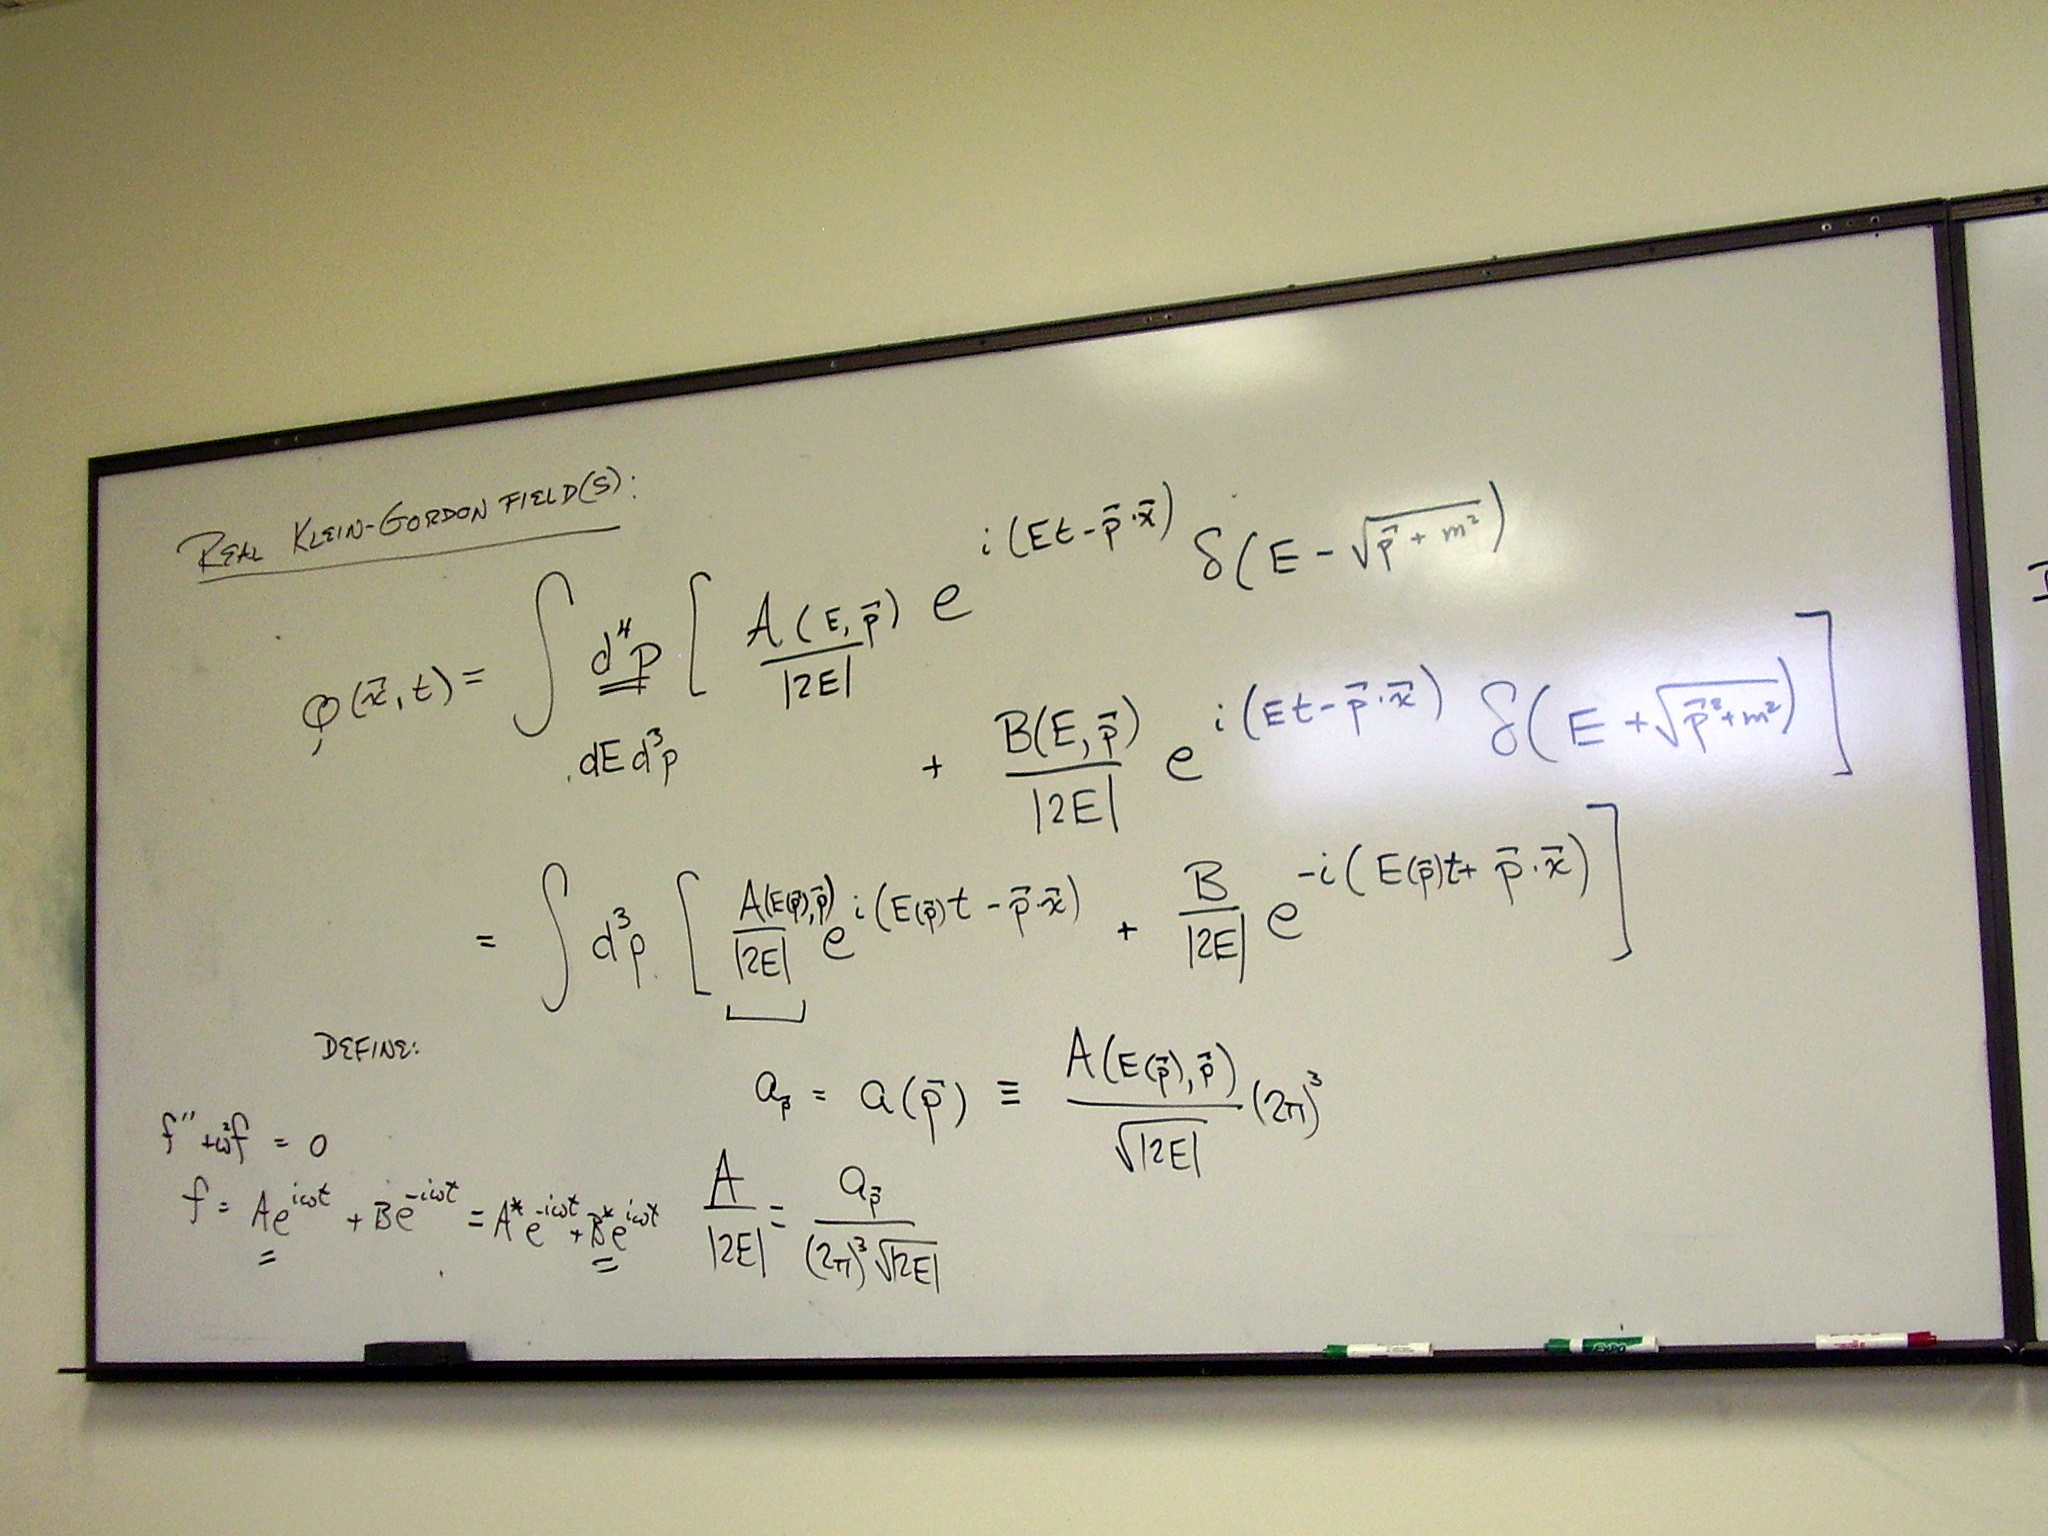 REAL KLEIN-GORDON FIELD(S):
φ(x⃗, t) = ∫ d⁴p [ A(E, p⃗)/|2E| e^{i(Et - p⃗·x⃗)} δ(E - √(p⃗ + m²))
dE d³p
+ B(E, p⃗)/|2E| e^{i(Et - p⃗·x⃗)} δ(E + √(p⃗² + m²)) ]
= ∫ d³p [ A(E(p⃗), p⃗)/|2E| e^{i(E(p⃗)t - p⃗·x⃗)} + B/|2E| e^{-i(E(p⃗)t + p⃗·x⃗)} ]
DEFINE:
a_p⃗ = a(p⃗) ≡ A(E(p⃗), p⃗)/√|2E| (2π)³
f'' + ω²f = 0
f = Ae^{iωt} + Be^{-iωt} = A*e^{-iωt} + B*e^{iωt}
A/|2E| = a_p⃗/((2π)³ √|2E|)
EXPO